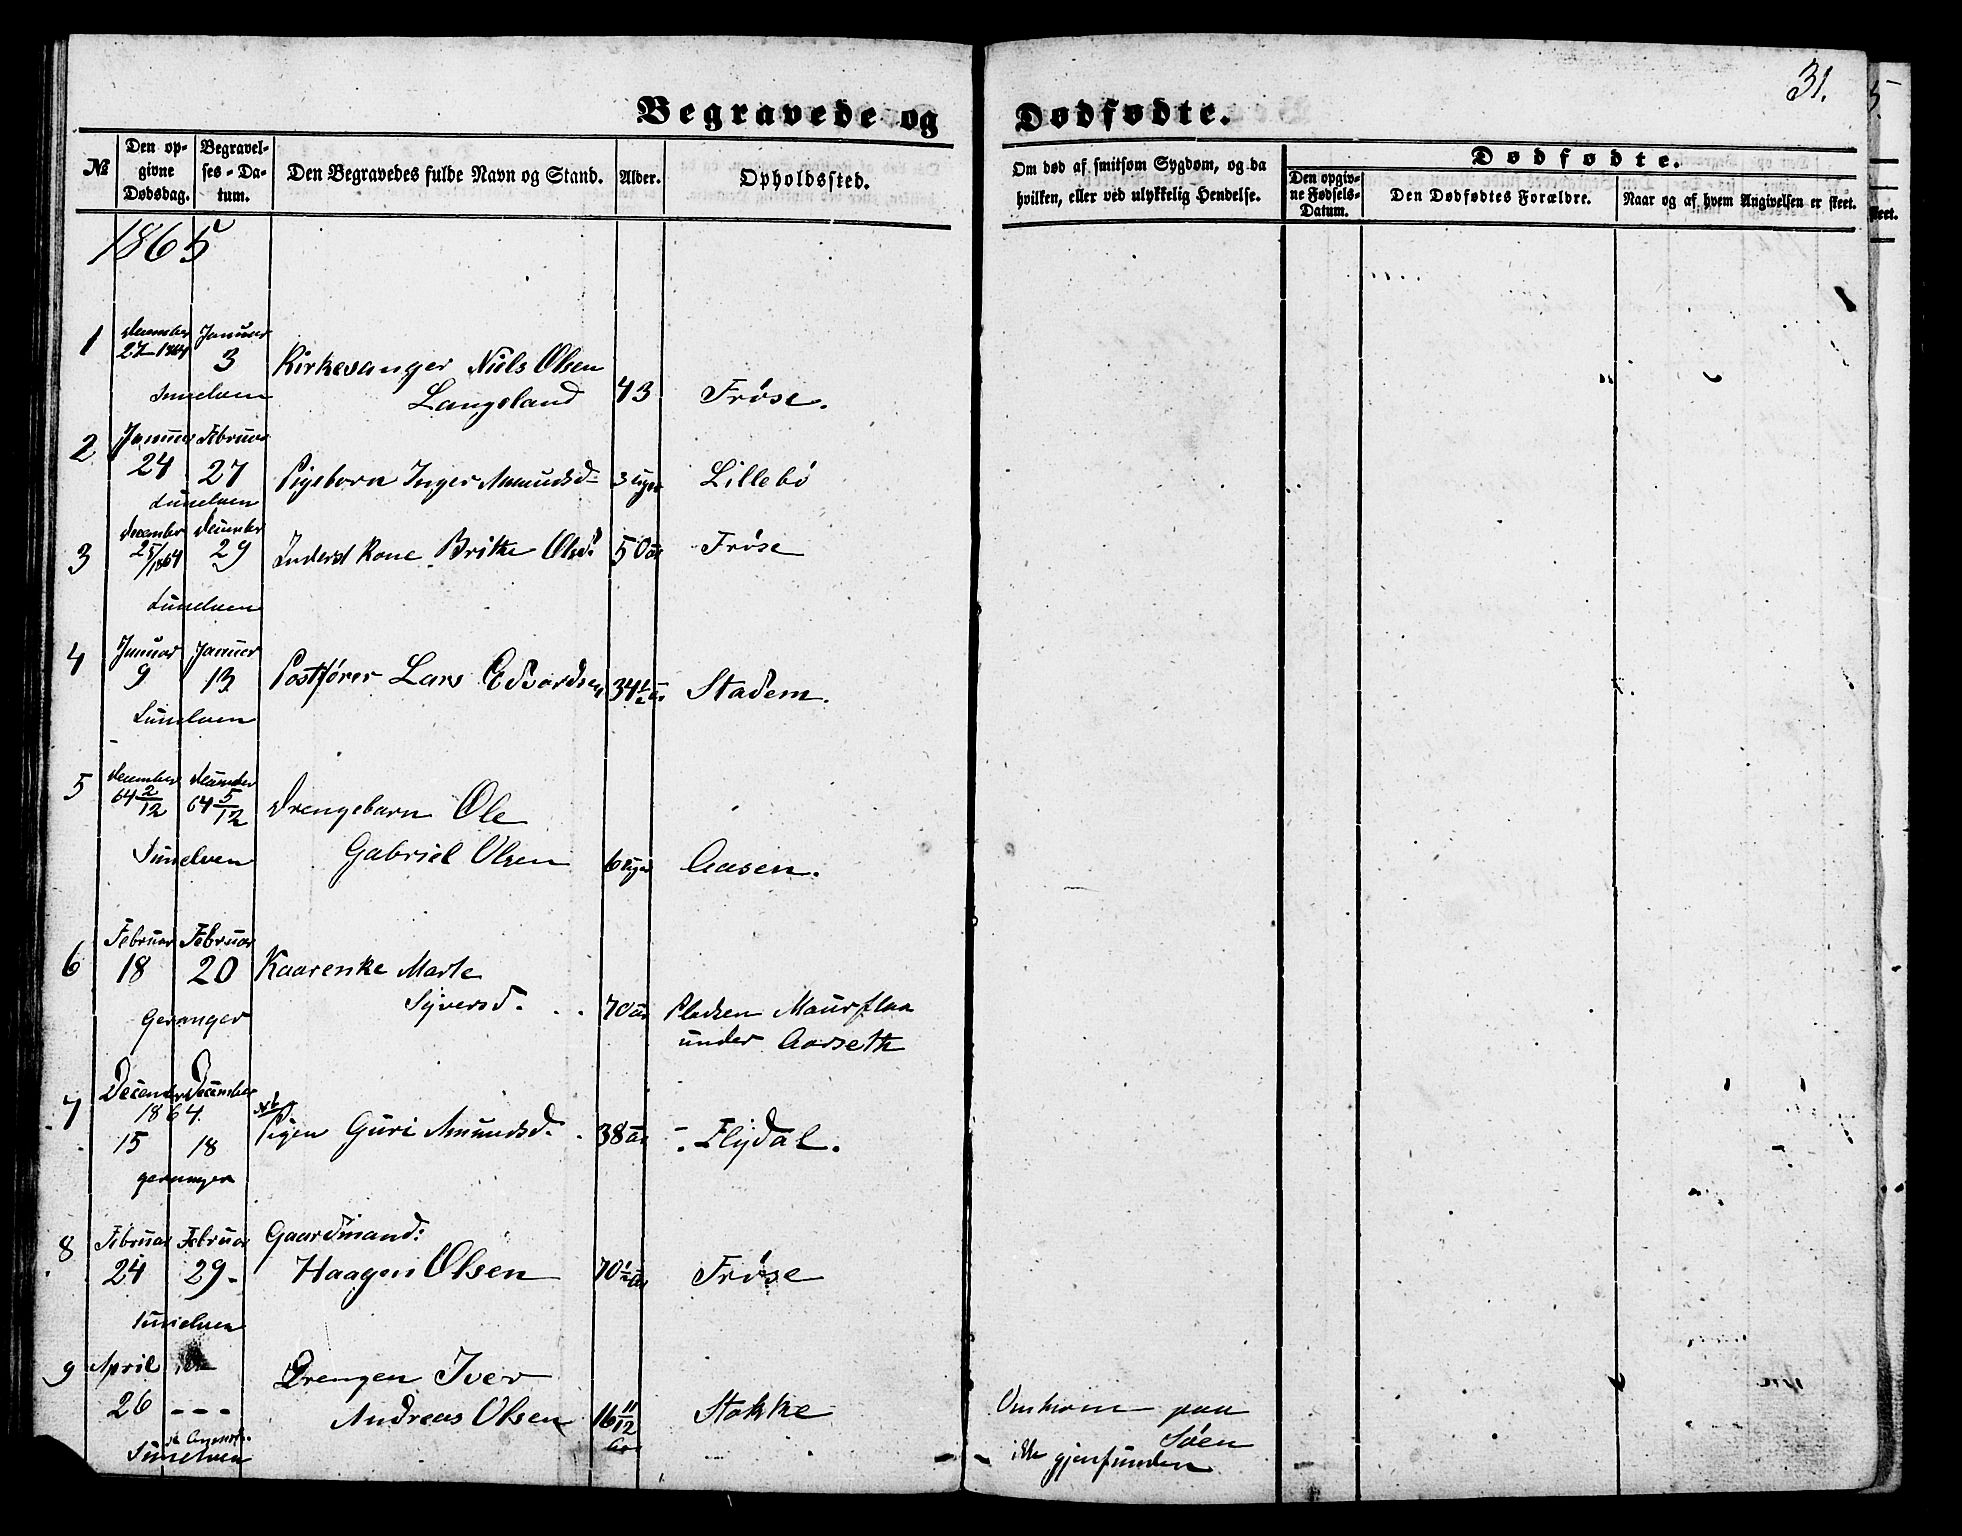 31.
Begravede og Dødfødte.
№
Den opgivne Dødsdag.
Begravelses-Datum.
Den Begravedes fulde Navn og Stand.
Alder.
Opholdssted.
Om død af smitsom Sygdom, og da hvilken, eller ved ulykkelig Hendelse.
Dødfødte.
Den opgivne Fødsels-Datum.
Den Dødfødtes Forældre.
Naar og af hvem Angivelsen er skeet.
1865
1 December 27 1864 Januar 3 Kirkesanger Niels Olsen
Langeland 43 Frøse.
Sunelven
2 Januar 24 Februar 27 Pigebarn Inger Amundsd. 3 Uger Lillebø
Sunelven
3 December 25/1864 December 29 Inderst Kone Brithe Olsd. 50 aar Frøse
Sunelven
4 Januar 9 Januar 13 Postfører Lars Edvardsen 34 1/2 Stadem.
Sunelven
5 December 64 2/12 December 64 5/12 Drengebarn Ole
Gabriel Olsen 6 Uger Aasen.
Sunelven
6 Februar 18 Februar 20 Kaarenke Marte
Syversd. 70 aar Pladsen Maurflaa
under Aarseth
Geranger
7 December December
1864.
15 18 Pigen Guri Amundsd. 38 aar Flydal.
geranger
8 Februar 24 Februar 29 Gaardmand:
Haagen Olsen 70 1/2 Frøse
Sunelven
9 April 26 - - - Drengen Iver
Andreas Olsen 16 11/12 Stokke Omkom paa
Søen
ikke gjenfunden
Sunelven